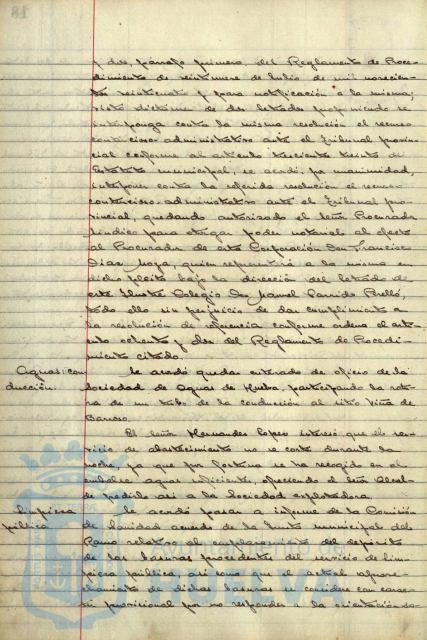 y dos, párrafo primero, del Reglamento de Proce-
dimiento de veintitres de Julio de mil novecien-
tos veinticuatro y para notificación a la misma;
visto dictamen de dos letrados proponiendo se
interponga contra la misma resolución el recurso
contencioso-administrativo ante el Tribunal provin-
cial conforme al artículo trescientos treinta del
Estatuto municipal, se acordó, por unanimidad,
interponer contra la referida resolución el recurso
contencioso-administrativo ante el Tribunal pro-
vincial, quedando autorizado el Señor Procurador
Síndico para otorgar poder notarial al efecto
al Procurador de esta Corporación Don Francisco
Díaz Moya, quien representará a la misma en
dicho pleito bajo la dirección del letrado de
este Ilustre Colegio Don Manuel Garrido Perelló,
todo ello sin perjuicio de dar cumplimiento a
la resolución de referencia conforme ordena el artí-
culo ochenta y dos del Reglamento de Procedi-
miento citado.
Aguas: con-
ducción.
Se acordó quedar enterado de oficio de la
Sociedad de Aguas de Huelva, participando la rotu-
ra de un tubo de la conducción al sitio Viña de
Barroso.
El Señor Hernandez Lopez interesó que el ser-
vicio de abastecimiento no se corte durante la
noche, ya que por fortuna se ha recogido en el
embalse agua suficiente, ofreciendo el Señor Alcal-
de pedirlo así a la Sociedad explotadora.
Limpieza
pública
Se acordó pasar a informe de la Comisión
de Sanidad acuerdo de la Junta municipal del
Ramo relativo al emplazamiento del depósito
de las basuras procedentes del servicio de lim-
pieza pública, así como que el actual aprove-
chamiento de dichas basuras se considere con carac-
ter provisional por no responder a la orientación sa-